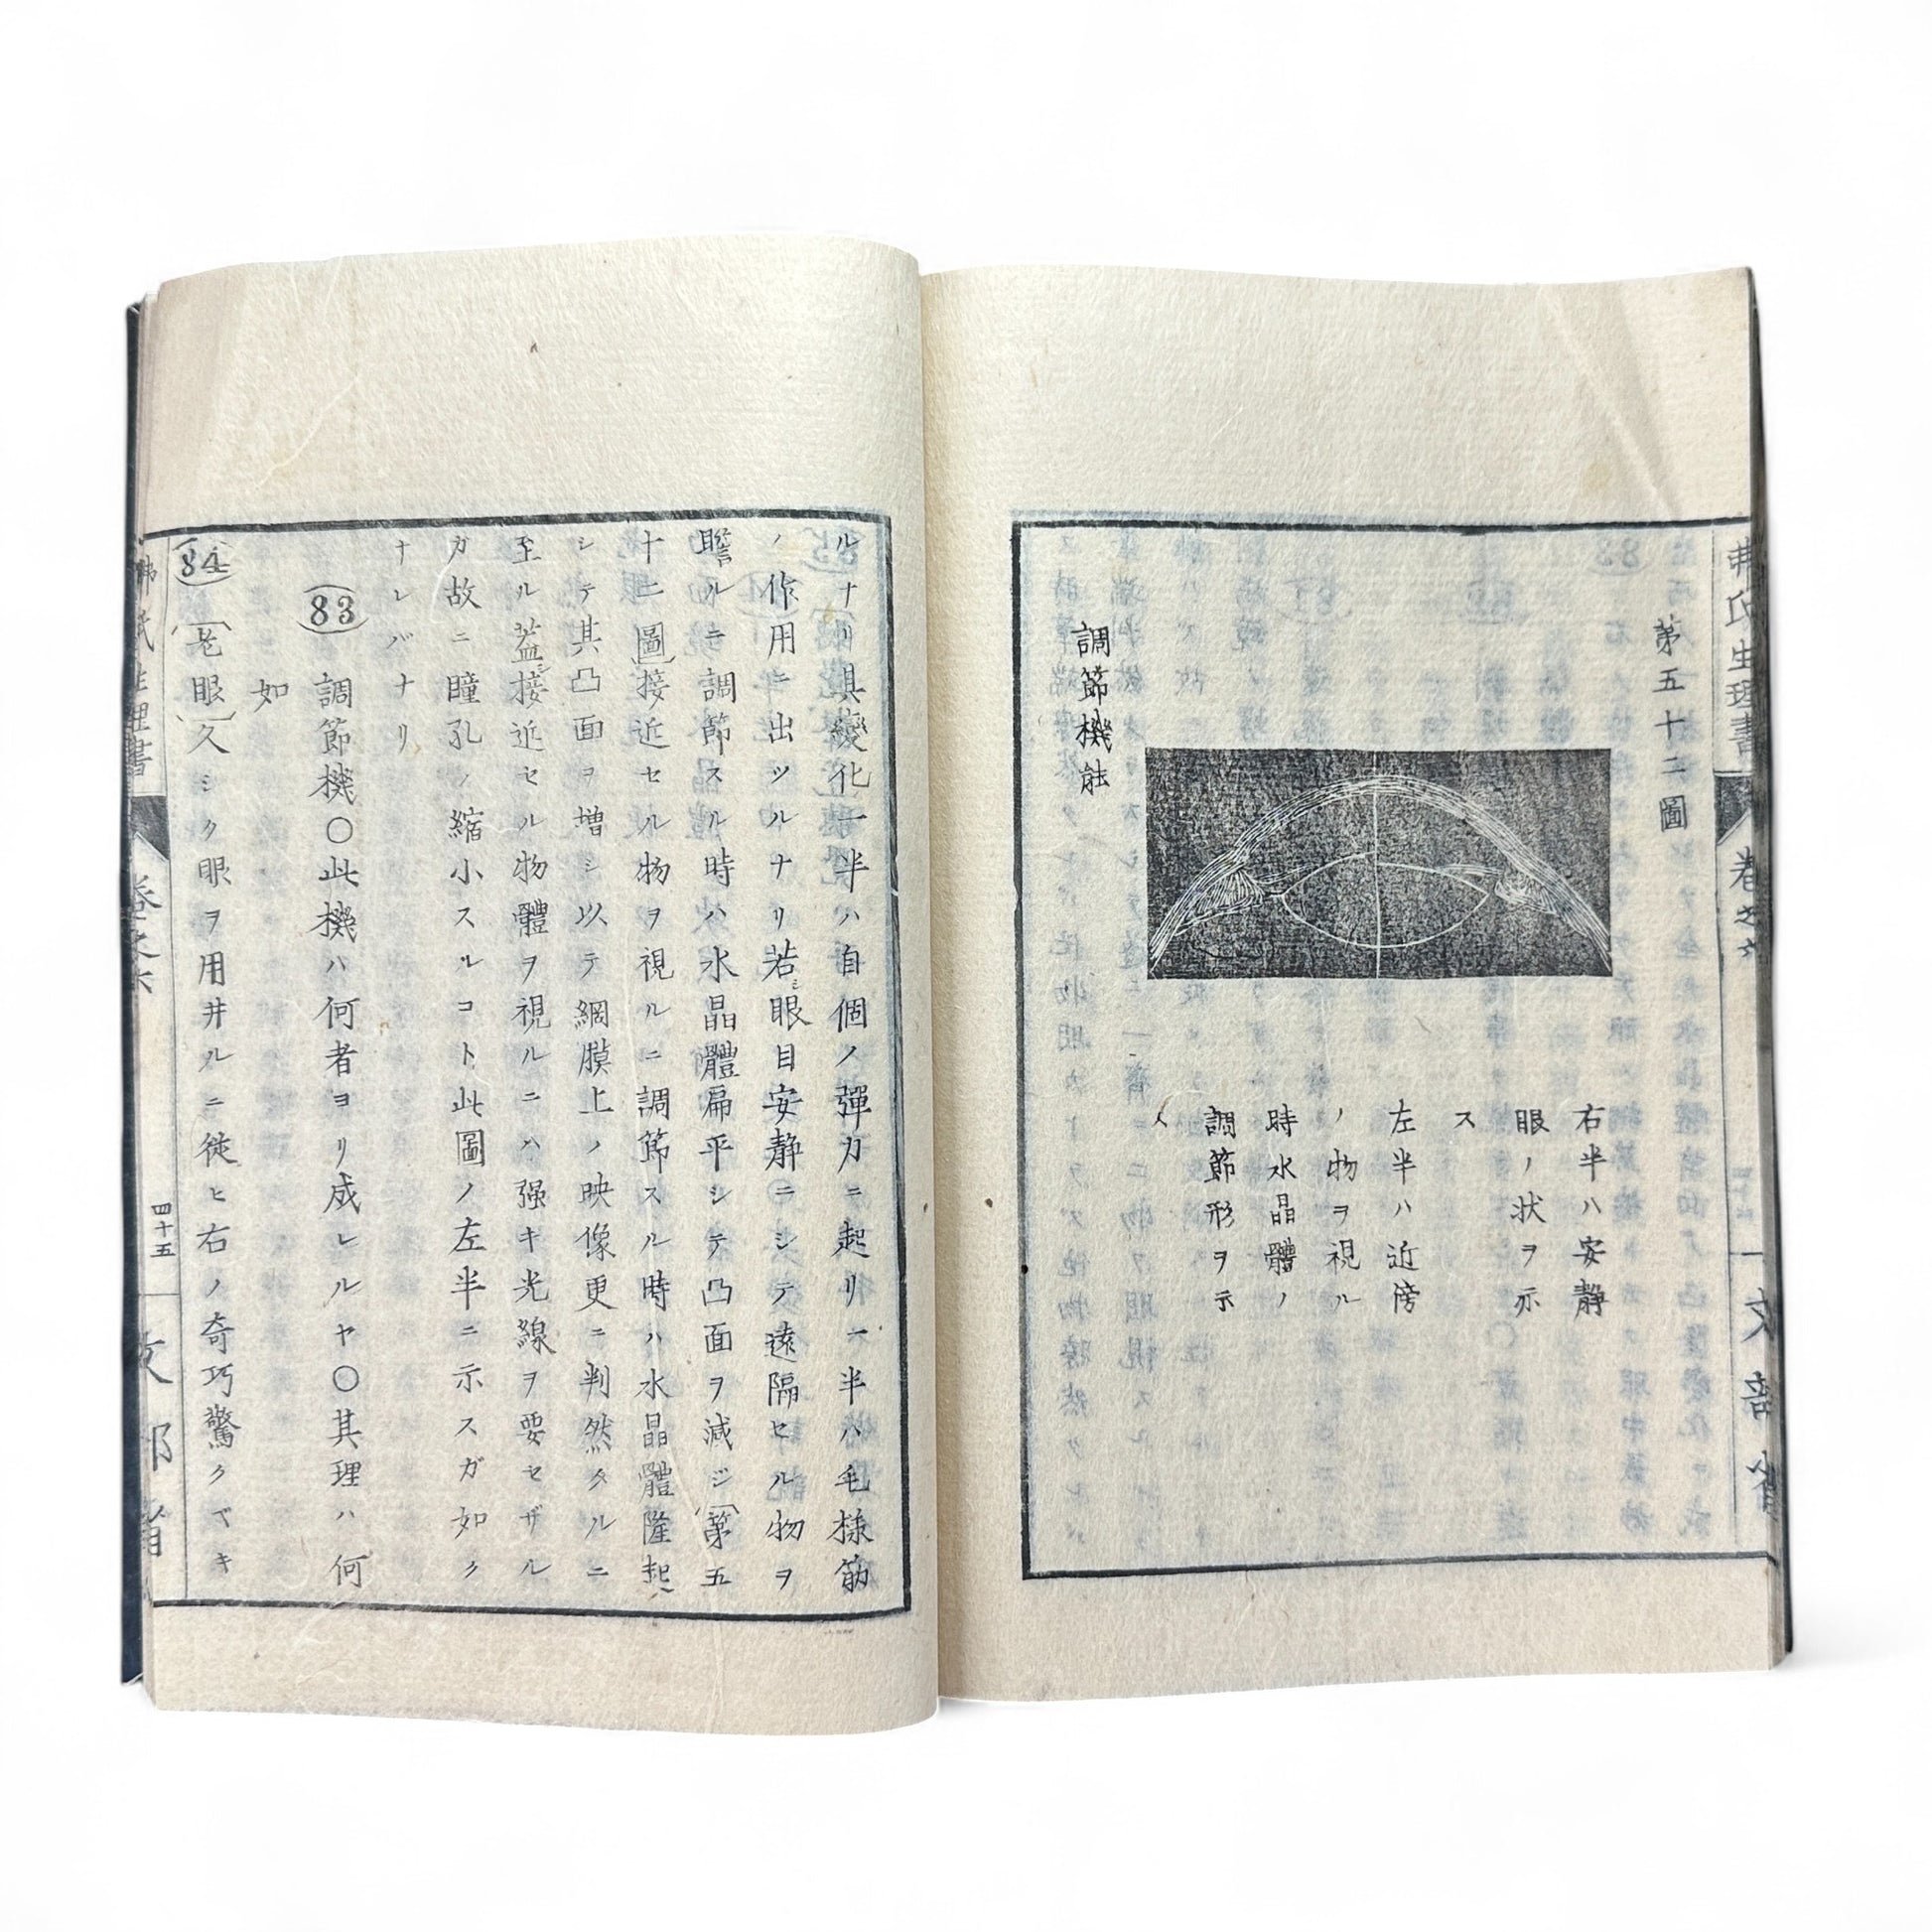 弗氏生理書
卷之六
文部省
第五十二圖
右半ハ安靜
眼ノ狀ヲ示
ス
左半ハ近傍
ノ物ヲ視ル
時水晶體ノ
調節形ヲ示
ス
調節機能
ルナリ其變化一半ハ自個ノ彈力ニ起リ一半ハ毛樣筋
ノ作用ニ出ツルナリ若シ眼目安靜ニシテ遠隔セル物ヲ
瞻ルニ調節スル時ハ水晶體扁平シテ凸面ヲ減ジ(第五
十二圖)接近セル物ヲ視ルニ調節スル時ハ水晶體隆起
シテ其凸面ヲ增シ以テ網膜上ノ映像更ニ判然タルニ
至ル蓋シ接近セル物體ヲ視ルニハ强キ光線ヲ要セザル
ガ故ニ瞳孔ノ縮小スルコト此圖ノ左半ニ示スガ如ク
ナレバナリ
83 調節機〇此機ハ何者ヨリ成レルヤ〇其理ハ何
如
84 (老眼)久シク眼ヲ用井ルニ從ヒ右ノ奇巧驚クベキ
弗氏生理書
卷之六
四十五
文部省